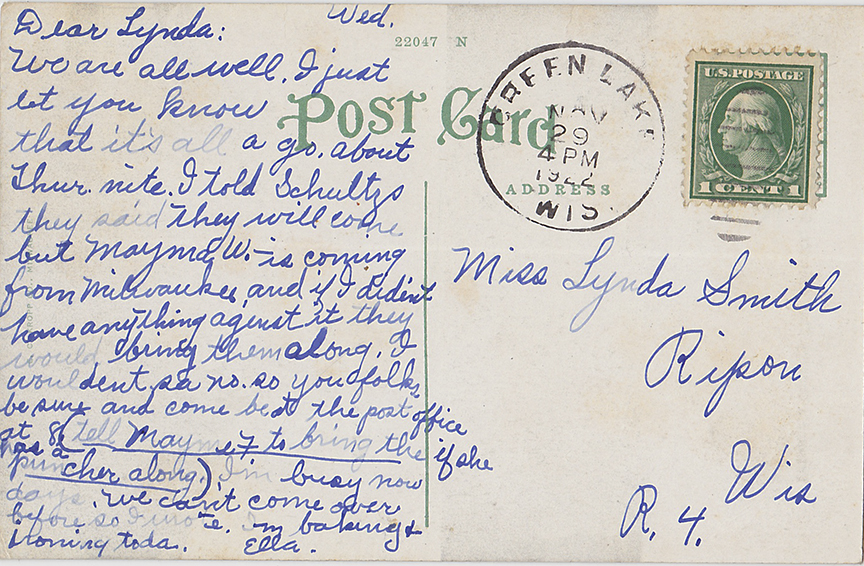 Wed.
Dear Lynda:
We are all well. I just
let you know
that it's all a go. about
Thur. nite. I told Schultzs
they said they will come
but Mayme W. is coming
from Milwaukee, and if I dident
have anything aginst it they
would bring them along. I
wouldent sa no. so you folks
be sure and come be at the post office
at 8 (tell Mayme to bring the if she
has a
puncher along.) I'm busy now
days. We can't come over
before so I wrote. I'm baking &
Ironing toda.
Ella.
22047 N
Post Card
ADDRESS
GREEN LAKE
NOV
29
4 PM
1922
WIS.
U.S. POSTAGE
1 CENT 1
Miss Lynda Smith
Ripon
Wis
R. 4.